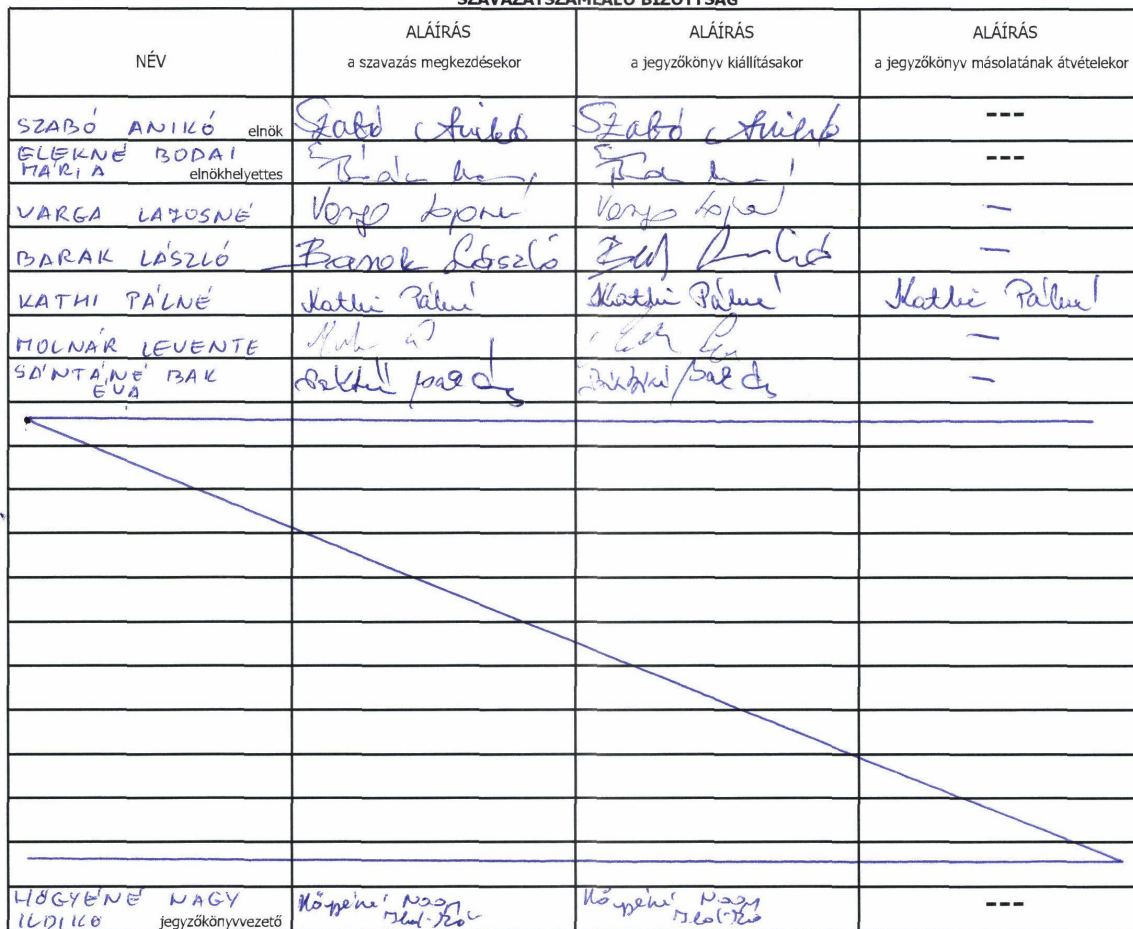 SZAVAZATSZÁMLÁLÓ BIZOTTSÁG
NÉV
ALÁÍRÁS
a szavazás megkezdésekor
ALÁÍRÁS
a jegyzőkönyv kiállításakor
ALÁÍRÁS
a jegyzőkönyv másolatának átvételekor
SZABÓ ANIKÓ elnök Szabó Anikó Szabó Anikó ---
ELEKNÉ BODAI
MÁRIA elnökhelyettes ---
VARGA LAJOSNÉ Varga Lajosné Varga —
BARAK LÁSZLÓ Barak László —
KATHI PÁLNÉ Kathi Pálné Kathi Pálné Kathi Pálné
MOLNÁR LEVENTE —
SÁNTÁNÉ BAK
ÉVA —
HŐGYÉNÉ NAGY
ILDIKÓ jegyzőkönyvvezető Hőgyéné Nagy
Ildikó Hőgyéné Nagy
Ildikó ---